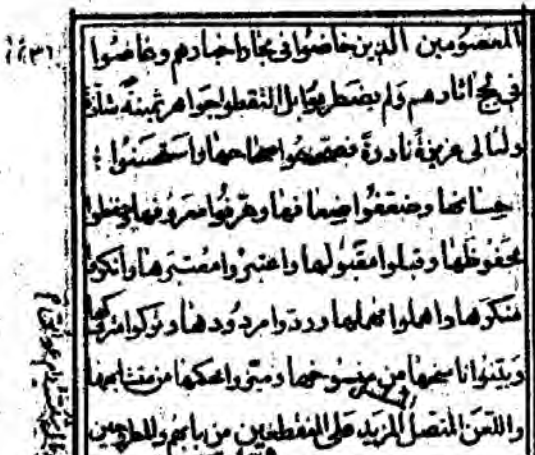 المعصومين الذين خاضوا في بحار اخبارهم وغاضوا
في لجج اثارهم ولم يضطربوا بل التقطوا جواهر ثمينة شاذة
ولئالى عزيزة نادرة فصححوا صحاحها واستحسنوا :
حسانها وضعفوا ضعافها وعرفوا معروفها وحفظوا
محفوظها وقبلوا مقبولها واعتبروا معتبرها وانكروا
منكرها واهملوا مهملها وردوا مردودها وتركوا متروكها
وبينوا ناسخها من منسوخها وميزوا محكمها من متشابهها
واللعن المتصل المزيد على المنقطعين من بابهم والمطروحين